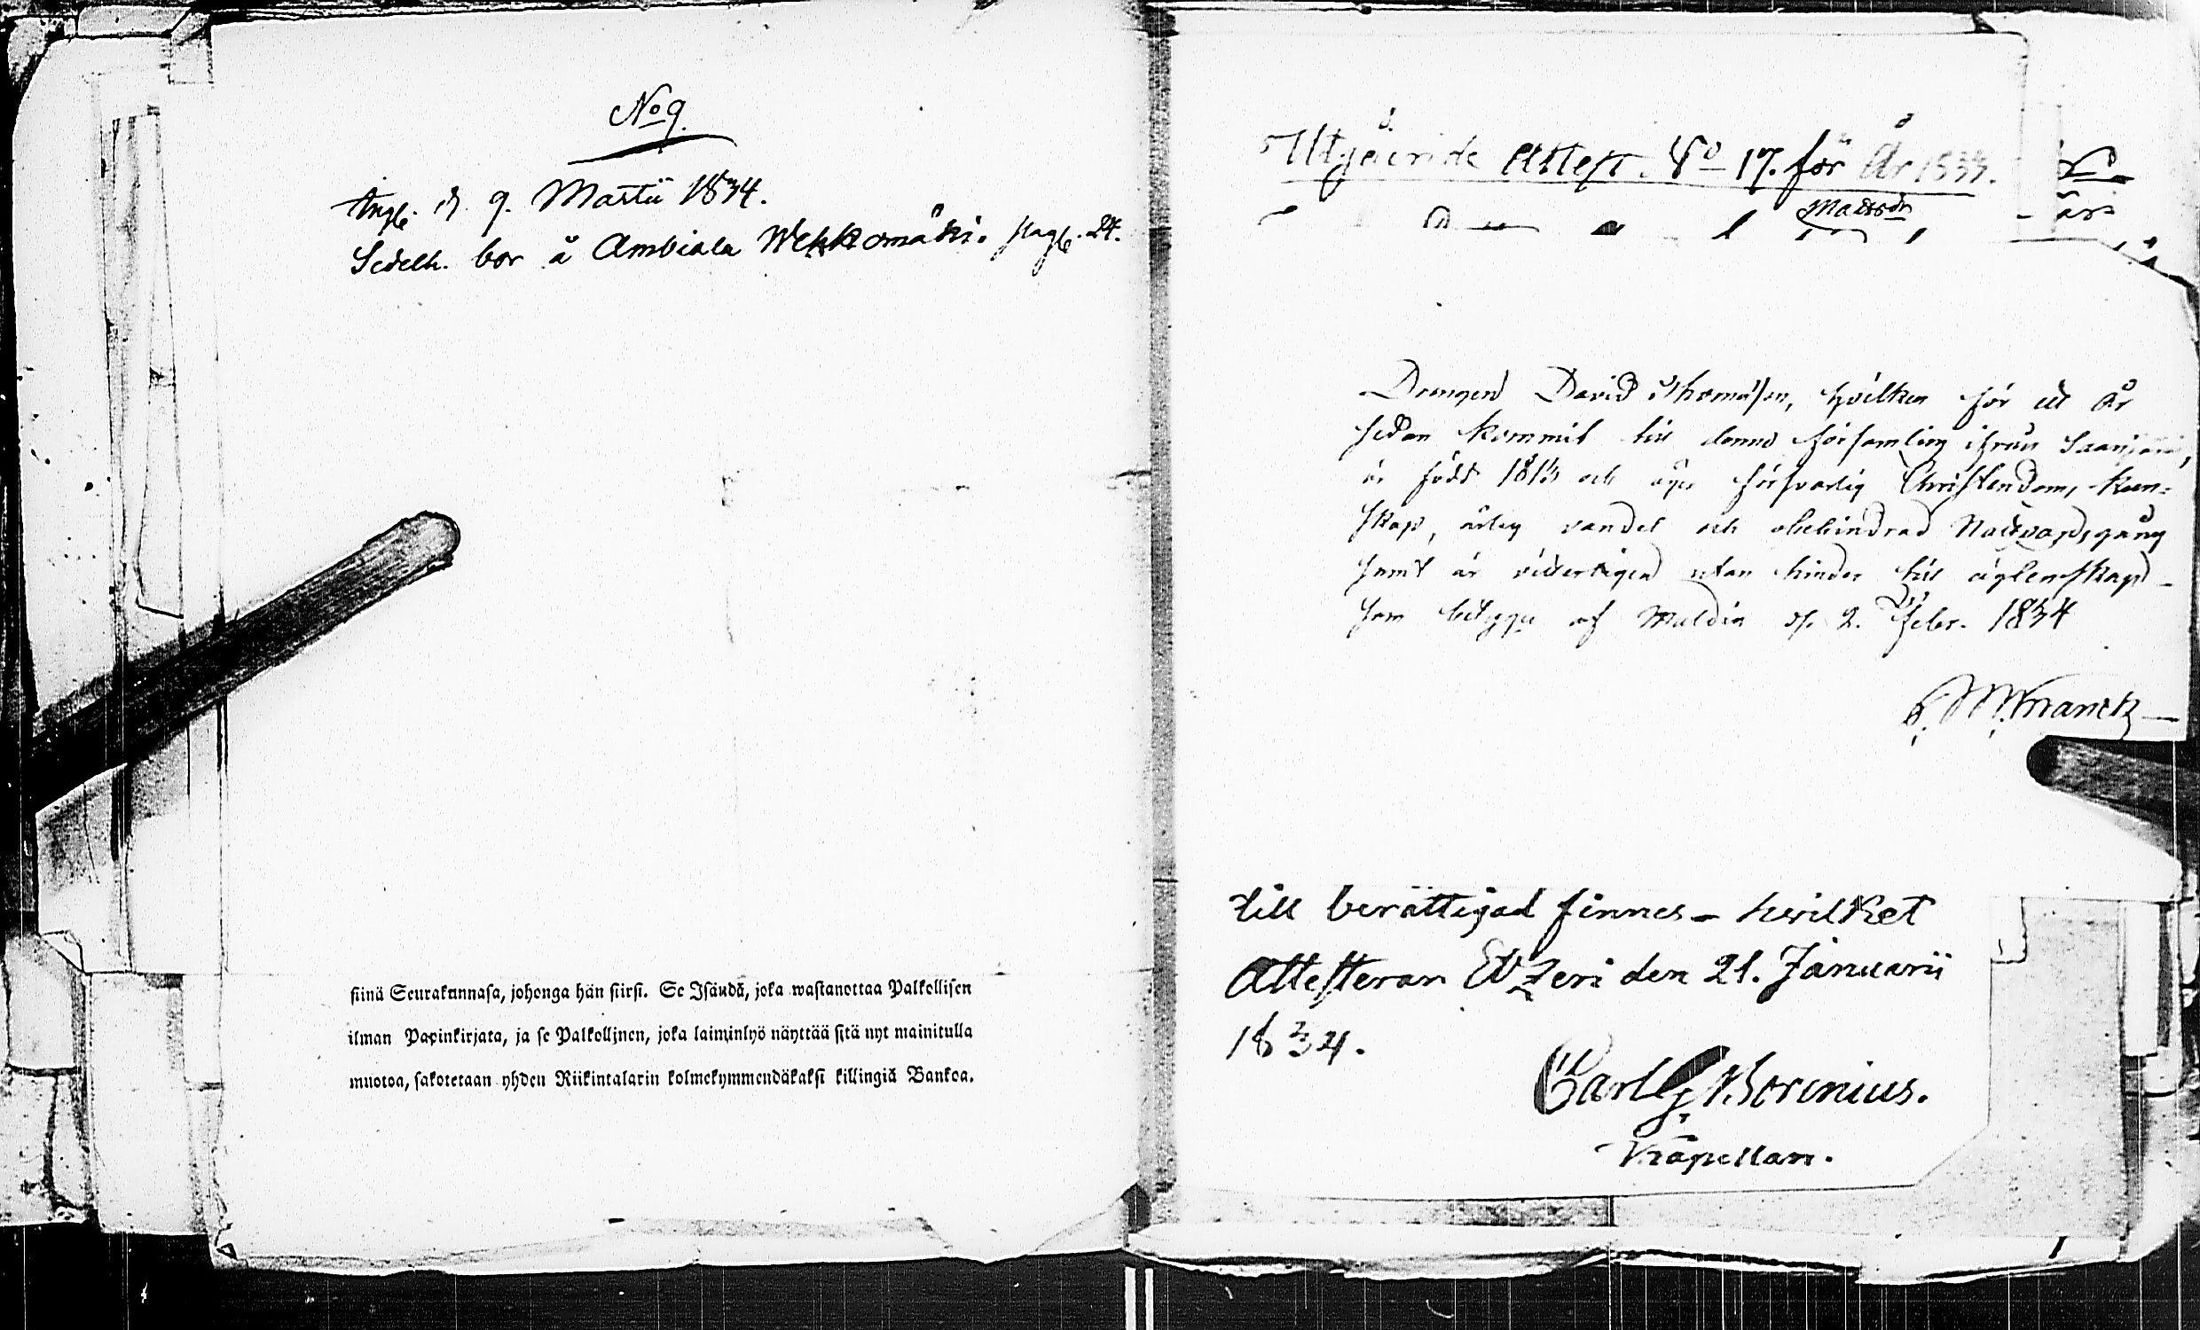 No 9.
Angf. d. 9. Martii 1834.
Sedelh. bor å Ambiala Wekkomäki. pag. 24.
siinä Seurakunnasa, johonga hän siirsi. Se Isändä, joka wastanottaa Palkollisen
ilman Papinkirjata, ja se Palkollinen, joka laiminlyö näyttää sitä nyt mainitulla
muotoa, sakotetaan yhden Riikintalarin kolmekymmendäkaksi killingiä Bankoa.
Utgående Attest. No 17. för År 1834.
Drengen David Thomasson, hvilken för ett år
sedan kommit till denna församling ifrån Saarijärvi,
är född 1813 och äger försvarlig Christendoms kun-
skap, ärlig vandel och obehindrad Nattvardsgång
samt är vitterligen utan hinder till äglenskap
som betygar af Muldia d. 2. Febr. 1834
M. Franck
till berättigad finnes – hvilket
Attesteras Etzeri den 21. Januarii
1834.
Carl G. Borenius.
Kapellan.